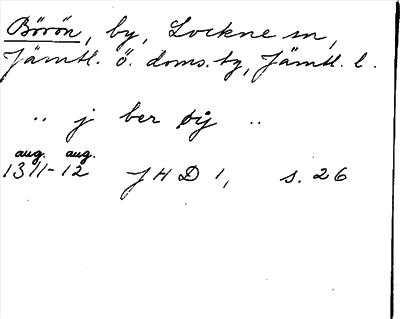 Börön, by, Lockne sn,
Jämtl. ö. doms. tg, Jämtl. l.
" j ber øij "
aug. aug.
1311-12 JHD 1, s. 26